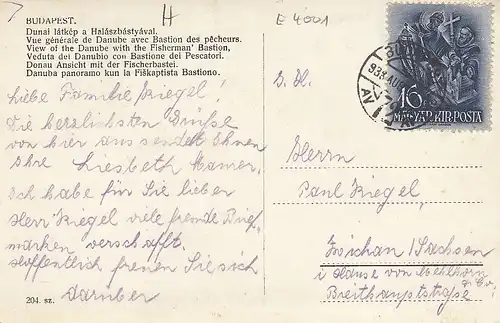 BUDAPEST.
Dunai látkép a Halászbástyával.
Vue générale de Danube avec Bastion des pêcheurs.
View of the Danube with the Fisherman' Bastion,
Veduta dei Danubio con Bastione dei Pescatori.
Donau Ansicht mit der Fischerbastei.
Danuba panoramo kun la Fiŝkaptista Bastiono.
H
E 4001
Liebe Familie Kiegel!
Die herzlichsten Grüße
von hier aus sendet Ihnen
Ihre Liesbeth Hamer.
Ich habe für Sie lieber
Herr Kiegel viele fremde Brief-
marken verschafft.
Hoffentlich freuen Sie sich
darüber
204. sz.
16
MAGYAR KIR. POSTA
Herrn
Paul Kiegel,
Zwickau / Sachsen
i Hause von Mehlhorn
Breithauptstraße